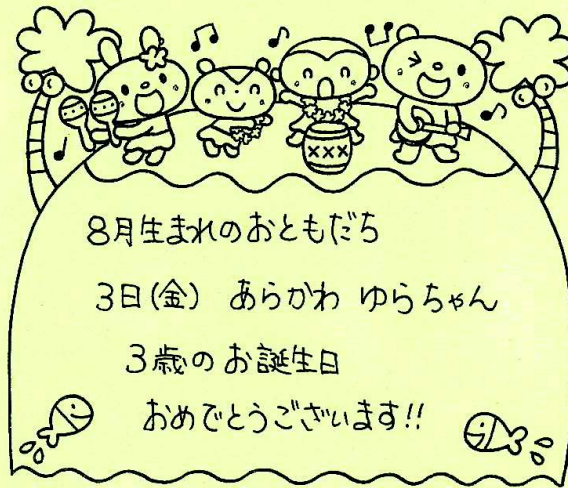 8月生まれのおともだち
3日(金) あらかわ ゆらちゃん
3歳のお誕生日
おめでとうございます!!